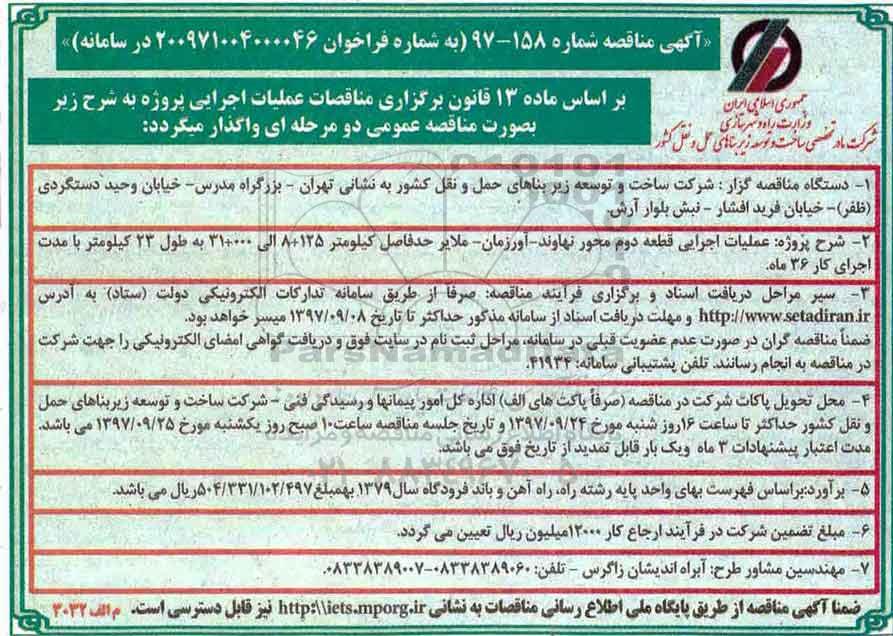 «آگهی مناقصه شماره ۱۵۸-۹۷ (به شماره فراخوان ۲۰۰۹۷۱۰۰۴۰۰۰۰۴۶ در سامانه)»
بر اساس ماده ۱۳ قانون برگزاری مناقصات عملیات اجرایی پروژه به شرح زیر
بصورت مناقصه عمومی دو مرحله ای واگذار میگردد:
جمهوری اسلامی ایران
وزارت راه و شهرسازی
شرکت مادر تخصصی ساخت و توسعه زیربناهای حمل و نقل کشور
۱- دستگاه مناقصه گزار : شرکت ساخت و توسعه زیر بناهای حمل و نقل کشور به نشانی تهران - بزرگراه مدرس- خیابان وحید دستگردی
(ظفر)- خیابان فرید افشار - نبش بلوار آرش.
۲- شرح پروژه: عملیات اجرایی قطعه دوم محور نهاوند-آورزمان- ملایر حدفاصل کیلومتر ۱۲۵+۸ الی ۰۰۰+۳۱ به طول ۲۳ کیلومتر با مدت
اجرای کار ۳۶ ماه.
۳- سیر مراحل دریافت اسناد و برگزاری فرآیند مناقصه: صرفاً از طریق سامانه تدارکات الکترونیکی دولت (ستاد) به آدرس
http://www.setadiran.ir و مهلت دریافت اسناد از سامانه مذکور حداکثر تا تاریخ ۱۳۹۷/۰۹/۰۸ میسر خواهد بود.
ضمناً مناقصه گران در صورت عدم عضویت قبلی در سامانه، مراحل ثبت نام در سایت فوق و دریافت گواهی امضای الکترونیکی را جهت شرکت
در مناقصه به انجام رسانند. تلفن پشتیبانی سامانه: ۴۱۹۳۴.
ParsNamadData
۴- محل تحویل پاکات شرکت در مناقصه (صرفاً پاکت های الف) اداره کل امور پیمانها و رسیدگی فنی - شرکت ساخت و توسعه زیربناهای حمل
و نقل کشور حداکثر تا ساعت ۱۶روز شنبه مورخ ۱۳۹۷/۰۹/۲۴ و تاریخ جلسه مناقصه ساعت۱۰ صبح روز یکشنبه مورخ ۱۳۹۷/۰۹/۲۵ می باشد.
مدت اعتبار پیشنهادات ۳ ماه ویک بار قابل تمدید از تاریخ فوق می باشد.
۵- برآورد:براساس فهرست بهای واحد پایه رشته راه، راه آهن و باند فرودگاه سال۱۳۷۹ بهمبلغ۵۰۴/۳۳۱/۱۰۲/۴۹۷ریال می باشد.
۶- مبلغ تضمین شرکت در فرآیند ارجاع کار ۱۲۰۰۰میلیون ریال تعیین می گردد.
۷- مهندسین مشاور طرح: آبراه اندیشان زاگرس - تلفن: ۰۸۳۳۸۳۸۹۰۶۰-۰۸۳۳۸۳۸۹۰۰۷.
ضمنا آگهی مناقصه از طریق پایگاه ملی اطلاع رسانی مناقصات به نشانی http:\\iets.mporg.ir نیز قابل دسترسی است. م الف ۳۰۳۲